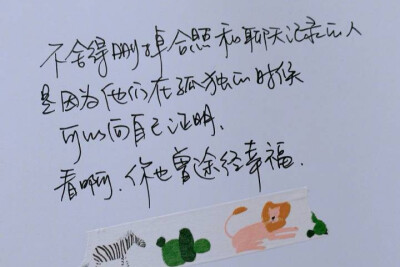 不舍得删掉合照和聊天记录的人
是因为他们在孤独的时候
可以向自己证明、
看啊，你也曾途经幸福.